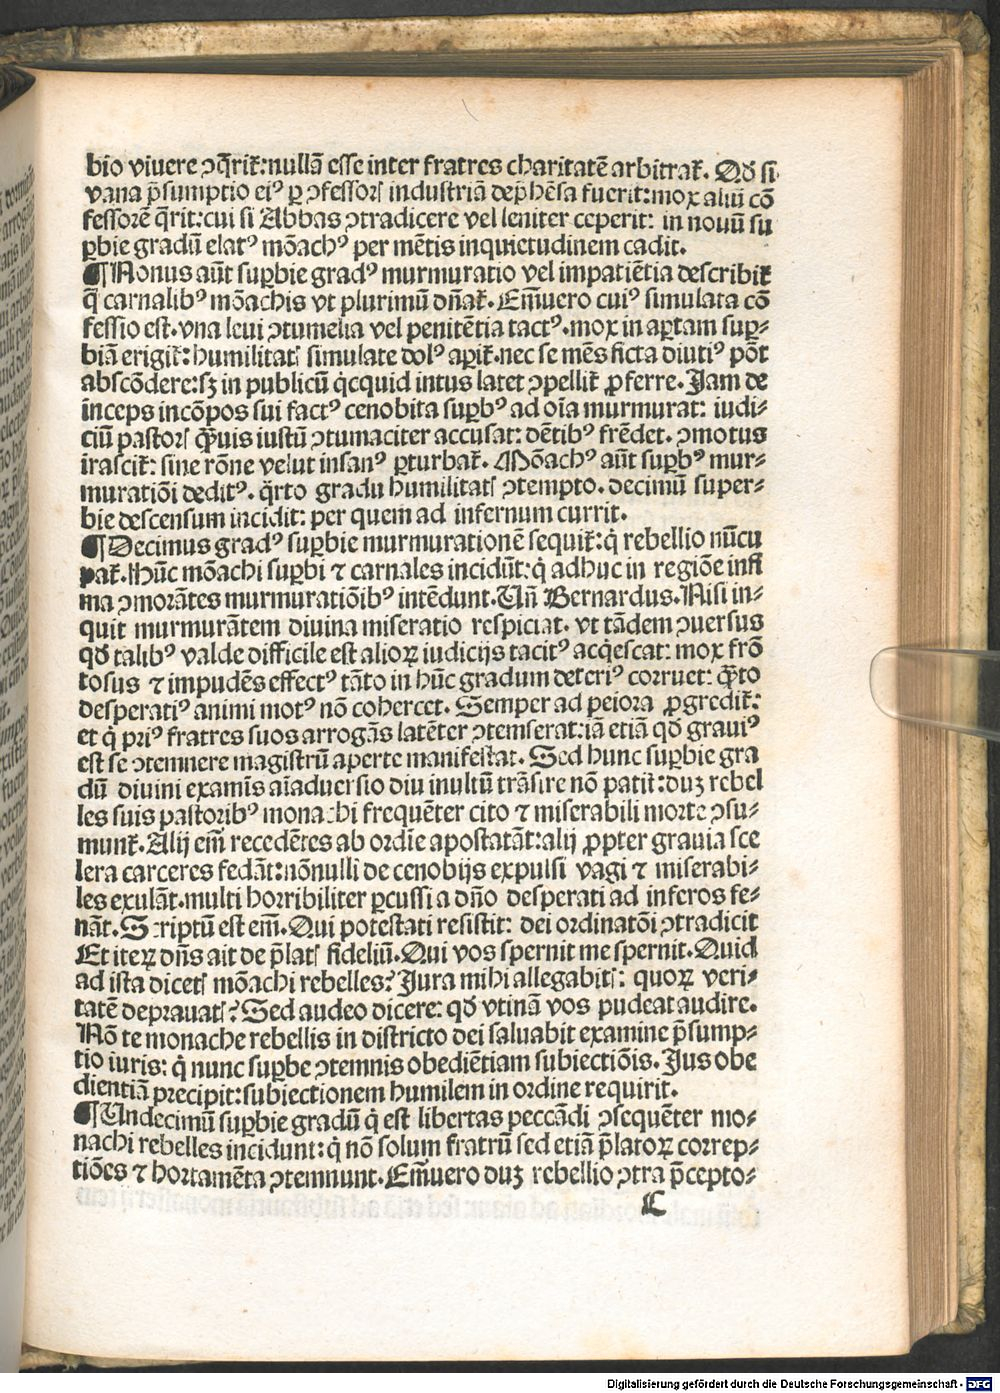 bio viuere ꝯq̄rit̃:nullā esse inter fratres charitatē arbitrat̃. Qd̕ si
vana p̄sumptio eiꝰ ꝑ ꝯfessorꝭ industriā dep̄hēsa fuerit:mox aliū cō
fessorē q̄rit:cui si Abbas ꝯtradicere vel leniter ceperit: in nouū su
ꝑbie gradū elatꝰ mōachꝰ per mētis inquietudinem cadit.
¶Nonus aūt suꝑbie gradꝰ murmuratio vel impatiētia describit̃
q̄ carnalibꝰ mōachis vt plurimū dn̄at̃. Em̄uero cuiꝰ simulata cō
fessio est. vna leui ꝯtumelia vel penitētia tactꝰ. mox in aꝑtam suꝑ⸗
biā erigit̃: humilitatꝭ simulate dolꝰ aꝑit̃.nec se mēs ficta diutiꝰ pōt
abscōdere:sꝫ in publicū q̇cquid intus latet ꝯpellit̃ ꝓferre. Jam de
inceps incōpos sui factꝰ cenobita suꝑbꝰ ad oīa murmurat: iudi⸗
ciū pastorꝭ q̄uis iustū ꝯtumaciter accusat: dētibꝰ frēdet. ꝯmotus
irascit̃: sine rōne velut insanꝰ ꝑturbat̃. Mōachꝰ aūt suꝑbꝰ mur⸗
muratiōi deditꝰ. q̄rto gradu humilitatꝭ ꝯtempto. decimū super⸗
bie descensum incidit: per quem ad infernum currit.
¶Decimus gradꝰ suꝑbie murmurationē sequit̃:q̇ rebellio nūcu
pat̃. Hūc mōachi suꝑbi ⁊ carnales incidūt:q̇ adhuc in regiōe infi
ma ꝯmorātes murmuratiōibꝰ intēdunt. Un̄ Bernardus. Nisi in⸗
quit murmurātem diuina miseratio respiciat. vt tādem ꝯuersus
qd̕ talibꝰ valde difficile est alioꝝ iudicijs tacitꝰ acq̇escat: mox frō
tosus ⁊ impudēs effectꝰ tāto in hūc gradum deteriꝰ corruet: q̄to
desperatiꝰ animi motꝰ nō cohercet. Semper ad peiora ꝓgredit̃:
et q̇ priꝰ fratres suos arrogās latēter ꝯtemserat:iā etiā qd̕ grauiꝰ
est se ꝯtemnere magistrū aperte manifestat. Sed hunc suꝑbie gra
dū diuini examīs aīaduersio diu inultū trāsire nō patit̃:duꝫ rebel
les suis pastoribꝰ monachi frequēter cito ⁊ miserabili morte ꝯsu⸗
munt̃. Alij em̄ recedētes ab ordīe apostatāt:alij ꝓpter grauia sce
lera carceres fedāt:nōnulli de cenobijs expulsi vagi ⁊ miserabi⸗
les exulāt. multi horribiliter ꝑcussi a dn̄o desperati ad inferos fe⸗
nāt. Scriptū est em̄. Qui potestati resistit: dei ordinatōi ꝯtradicit
Et iteꝝ dn̄s ait de p̄latꝭ fideliū. Qui vos spernit me spernit. Quid
ad ista dicetꝭ mōachi rebelles? Jura mihi allegabitꝭ: quoꝝ veri⸗
tatē deprauatꝭ? Sed audeo dicere: qd̕ vtinā vos pudeat audire.
Nō te monache rebellis in districto dei saluabit examine p̄sump⸗
tio iuris: q̇ nunc suꝑbe ꝯtemnis obediētiam subiectiōis. Jus obe
dientiā precipit: subiectionem humilem in ordine requirit.
¶Undecimū suꝑbie gradū q̇ est libertas peccādi ꝯsequēter mo⸗
nachi rebelles incidunt: q̇ nō solum fratrū sed etiā p̄latoꝝ correp⸗
tiōes ⁊ hortamēta ꝯtemnunt. Em̄uero duꝫ rebellio ꝯtra p̄cepto⸗
C
Digitalisierung gefördert durch die Deutsche Forschungsgemeinschaft - DFG